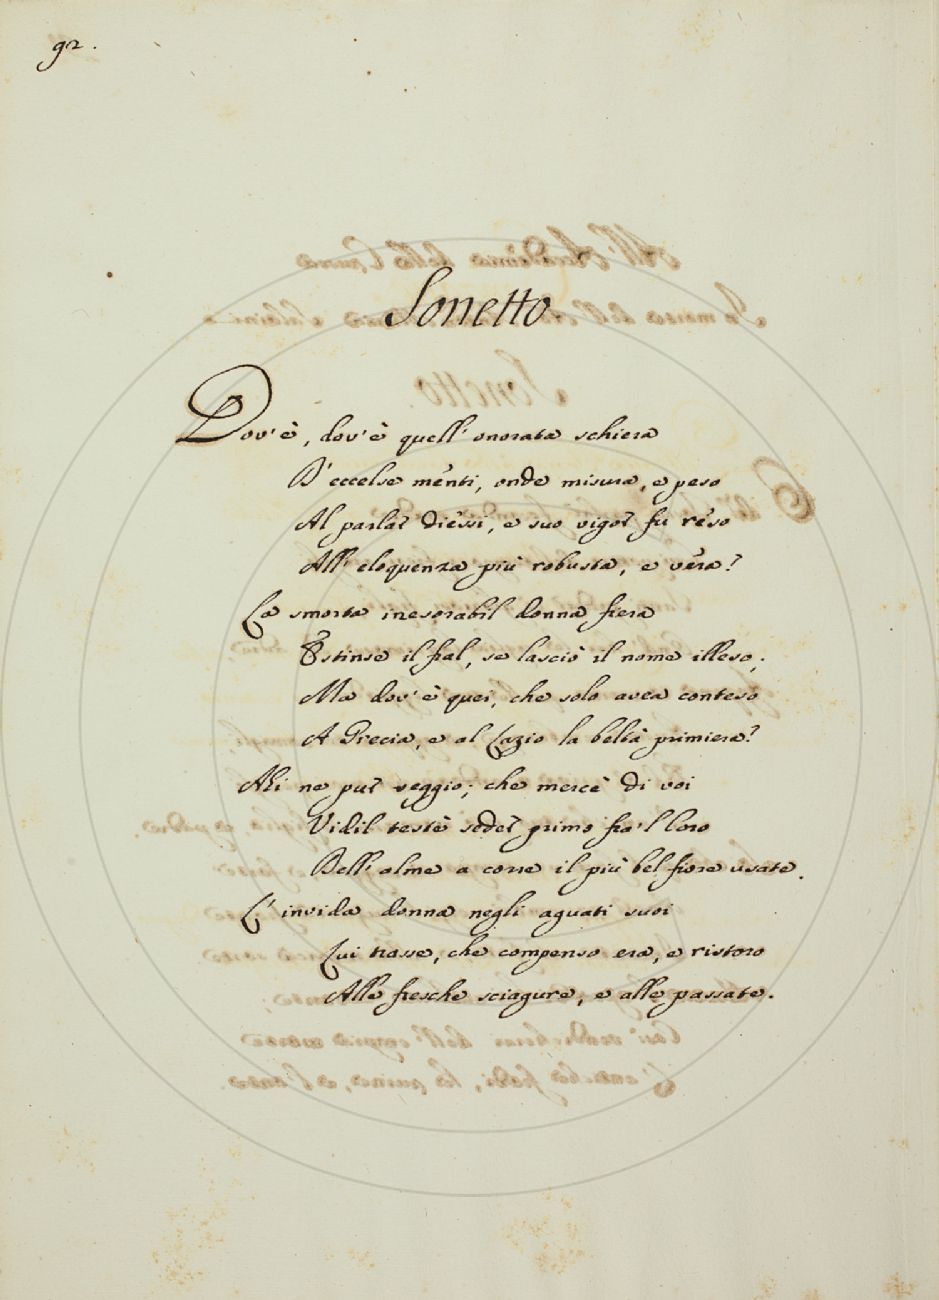 92.
Sonetto
Dov'è, dov'è quell' onorata schiera
D' eccelse menti, onde misura, e peso
Al parlar diessi, e suo vigor fu reso
All' eloquenza più robusta, e vera?
La smorta inesorabil donna fiera
Estinse il fral, se lasciò il nome illeso;
Ma dov'è quei, che solo avea conteso
A Grecia, e al Lazio la beltà primiera?
Ahi ne pur veggio; che mercè di voi
Vidil testè seder primo fra 'l loro
Bell' alme a corre il più bel fiore usate.
L' invida donna negli aguati suoi
Lui trasse, che compenso era, e ristoro
Alle fresche sciagure, e alle passate.